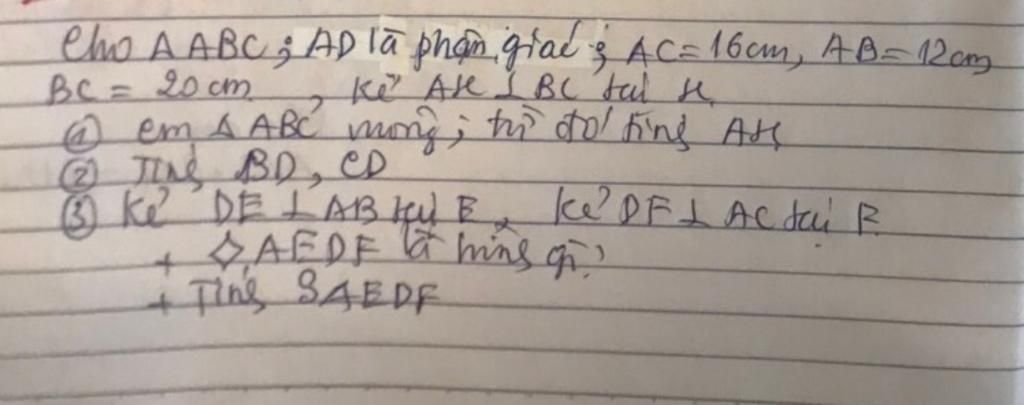 Cho Δ ABC; AD là phân giác; AC = 16cm, AB = 12cm
BC = 20 cm, kẻ AH ⊥ BC tại H.
① cm Δ ABC vuông; từ đó tính AH
② Tính BD, CD
③ Kẻ DE ⊥ AB tại E, Kẻ DF ⊥ AC tại F
+ ◇AEDF là hình gì?
+ Tính SAEDF